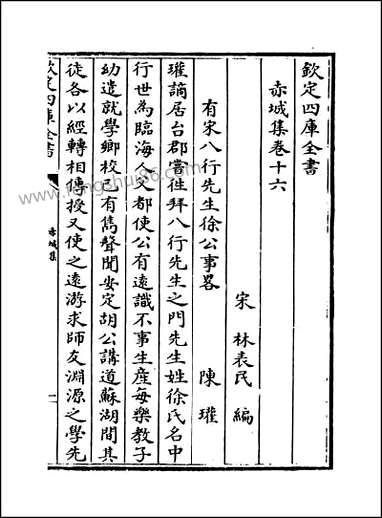 欽定四庫全書
赤城集卷十六
宋 林表民 編
有宋八行先生徐公事畧 陳瓘
瓘謫居台郡嘗徃拜八行先生之門先生姓徐氏名中
行世為臨海人父都使公有遠識不事生產每樂教子
幼遣就學鄉校已有雋聲聞安定胡公講道蘇湖間其
徒各以經轉相傳授又使之遠游求師友淵源之學先
欽定四庫全書
赤城集
一